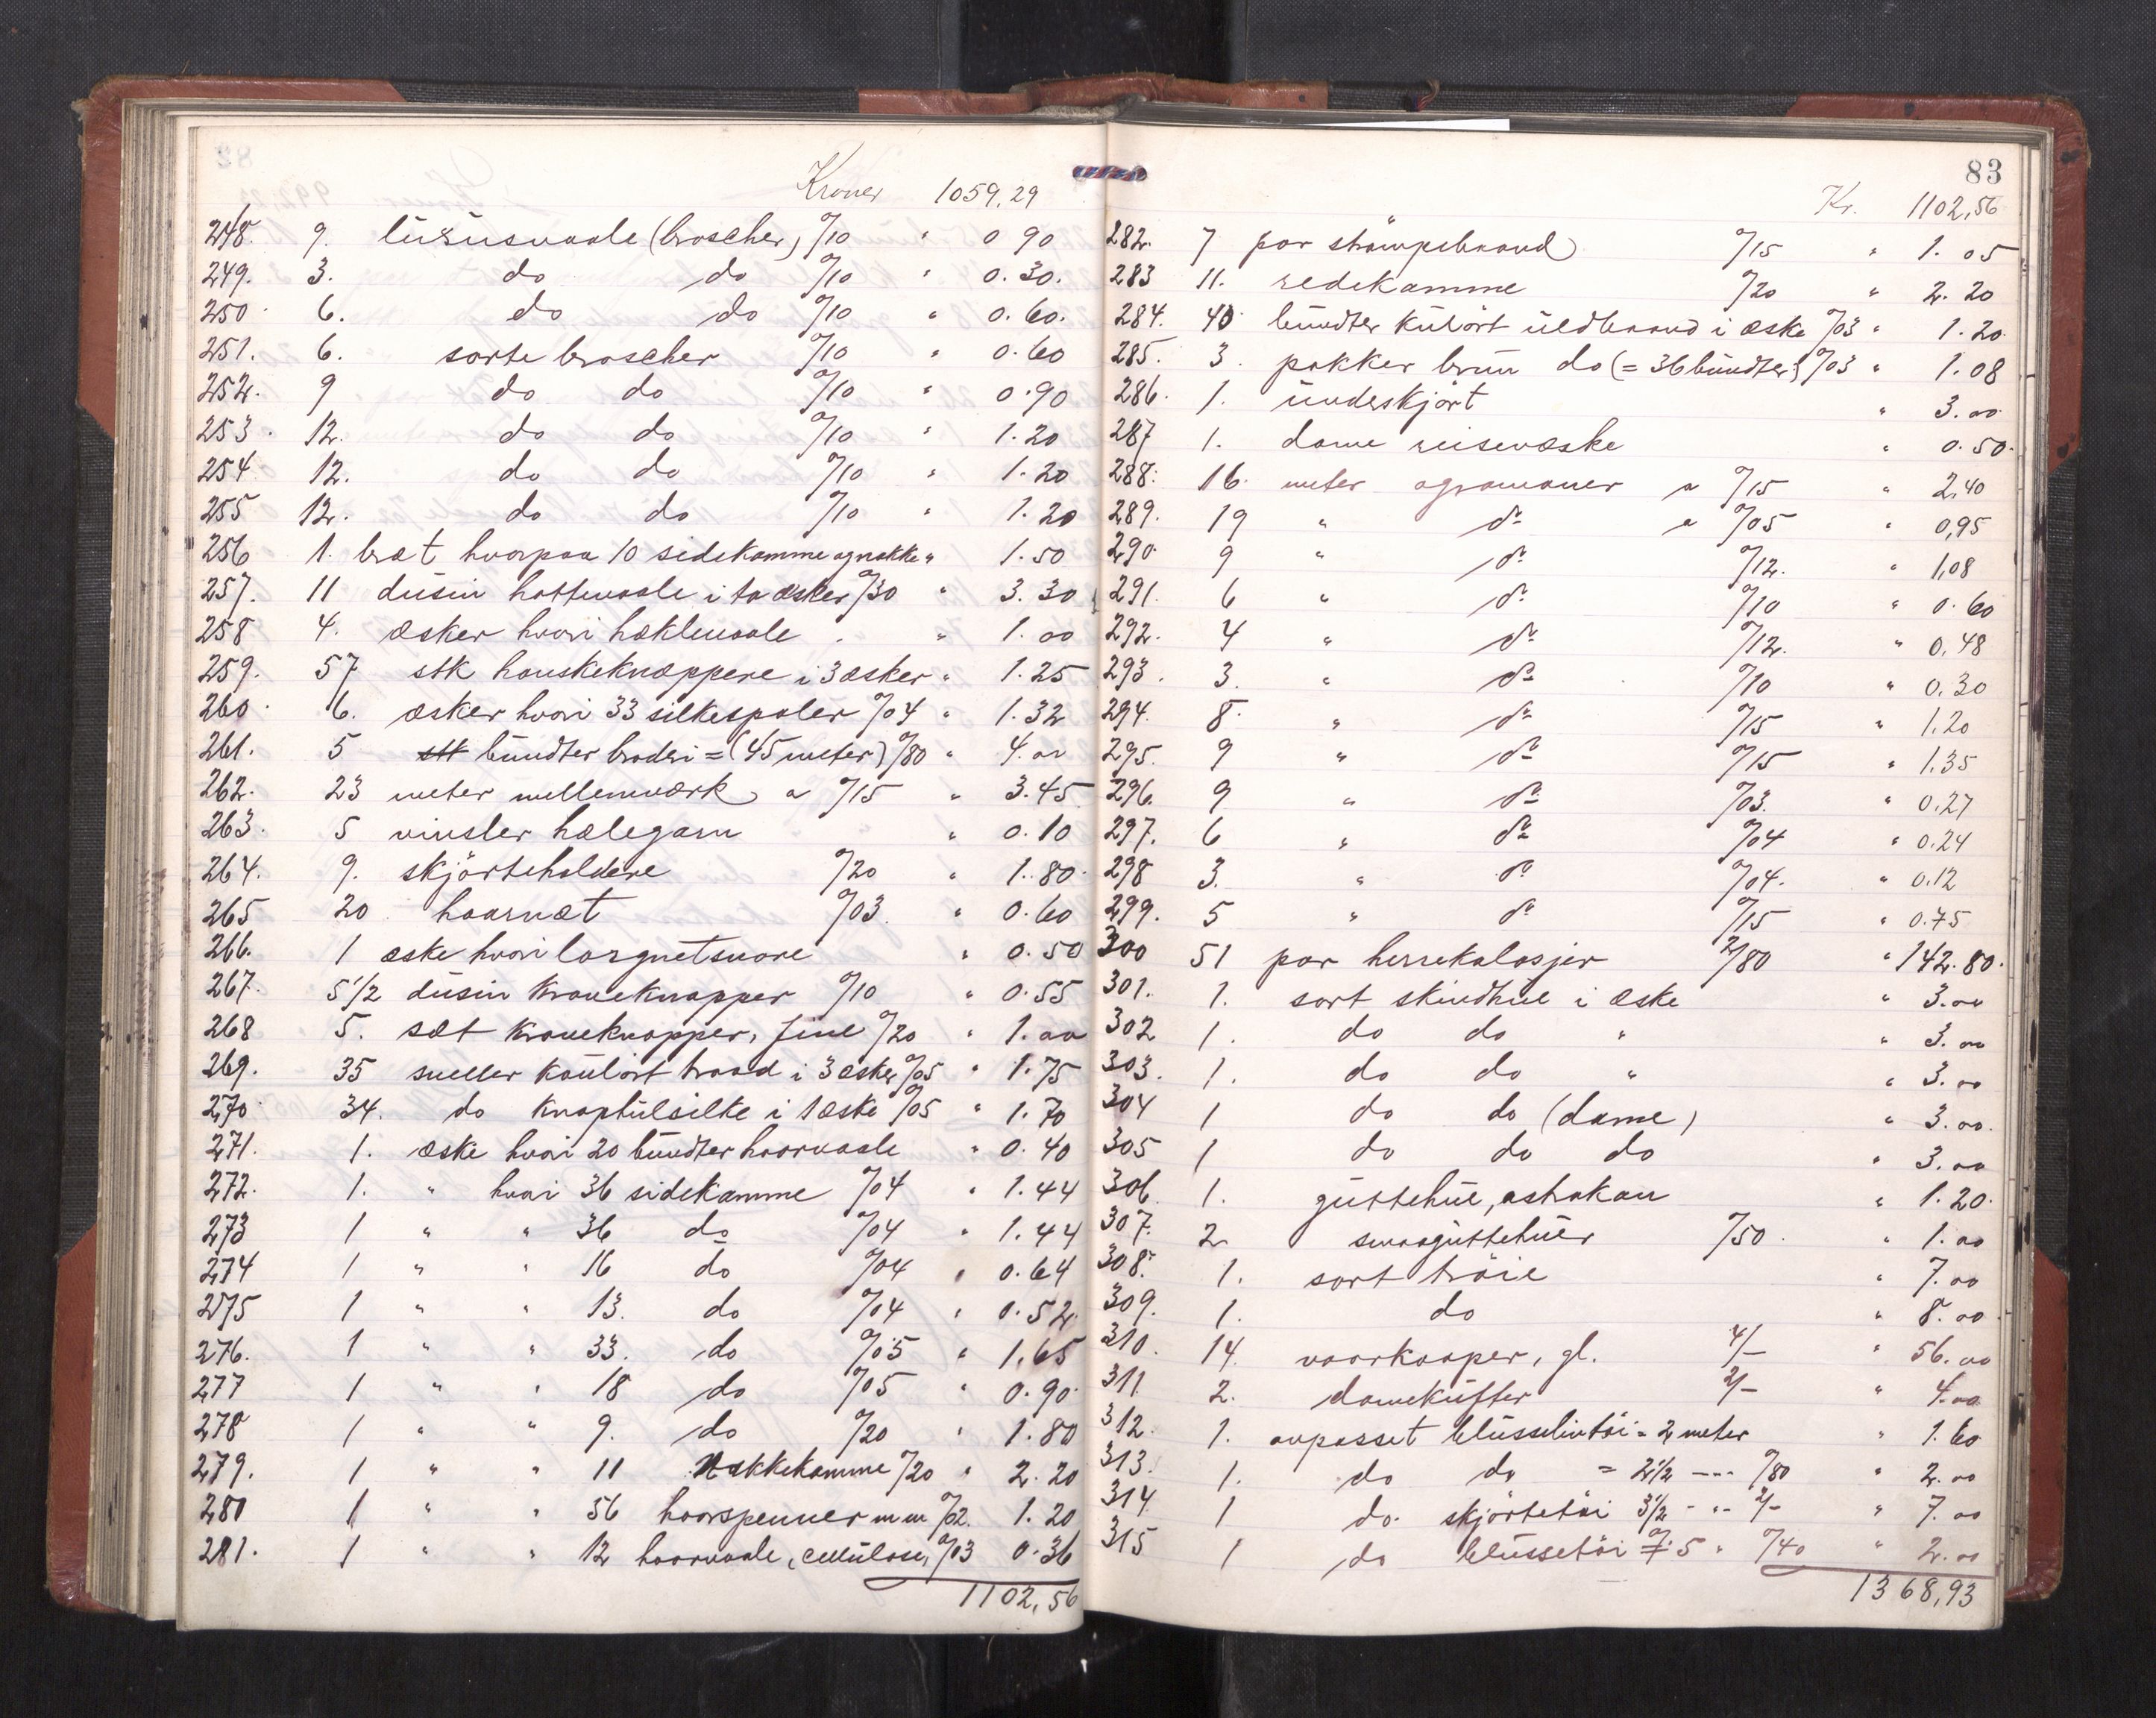 Kroner 1059,29
248. 9. lüxüsnaale (broscher) %10 " 0 90
249. 3. do do %10 " 0.30.
250. 6. do do %10 " 0.60.
251. 6. sorte broscher %10 " 0.60
252. 9 do do %10 " 0.90
253. 12. do do %10 " 1.20
254 12. do do %10 " 1.20
255 12. do do %10 " 1.20
256 1. bræt hvorpaa 10 sidekamme ognakke " 1.50
257. 11 düsin hattenaale i to æsker %30 " 3.30
258 4. æsker hvori hæklenaale . " 1.00
259. 57 stk hanskeknæppere i 3 æsker " 1.25
260. 6. æsker hvori 33 silkespoler %04 " 1.32
261. 5 stk bündter broderi = (45 meter) %80 " 4.00
262. 23 meter mellemværk a %15 " 3.45
263. 5 vinsler hælegarn " 0.10
264. 9. skjörteholdere %20 " 1.80.
265 20 haarnæt %03. " 0.60
266. 1 æske hvori lorgnetsnore " 0.50
267. 5½ düsin kraveknapper %10 " 0.55
268 5. sæt kraveknapper, fine %20 " 1.00
269. 35 sneller koülört traad i 3 æsker %05 " 1.75
270. 34. do knaphülsilke i 1 æske %05 " 1.70
271. 1. æske hvori 20 bündter haarnaale " 0.40
272. 1. " hvori 36 sidekamme %04 " 1.44
273 1 " " 36 do %04 " 1.44
274 1 " " 16 do %04 " 0.64
275 1 " " 13. do %04 " 0.52.
276. 1 " " 33. do %05 " 1,65
277 1 " " 18 do %05 " 0.90.
278 1 " " 9. do %20 " 1.80
279. 1 " " 11 Nakkekamme %20 " 2.20
280 1 " " 56 haarspenner m m %02. 1.20
281. 1 " " 12 haarnaale, cellülose, %03 0.36
1102,56
83
Kr. 1102,56
282. 7 par strömpebaand %15 " 1.05
283 11. redekamme %20 " 2.20
284. 40 bündter külört üldbaand i æske %03 " 1.20.
285. 3. pakker brün do (= 36 bündter) %03 " 1.08
286. 1. ünderskjört " 3.00.
287 1. dame reisevæske " 0.50.
288. 16. meter agramaner a %15 " 2,40
289. 19 " do a %05 " 0,95
290. 9 " do %12. " 1,08
291. 6 " do %10 " 0.60
292. 4 " do %12. " 0,48
293. 3. " do %10 " 0.30
294. 8. " do %15 " 1.20
295. 9 " do %15 " 1.35
296. 9 " do %03. " 0.27
297. 6 " do %04 " 0.24
298 3. " do %04. " 0.12
299. 5 " do %15 " 0.75
300 51 par herrekalosjer 2/80 " 142.80.
301. 1. sort skindhüe i æske " 3.00
302 1. do do " " 3.00
303. 1. do do " " 3.00
304 1 do do (dame) " 3.00.
305 1 do do do " 3.00
306. 1. güttehüe, astrakan " 1.20.
307. 2 smaagüttehüer %50. " 1.00
308. 1. sort tröie " 7.00
309. 1. do " 8.00
310. 14. vaarkaaper, gl. 4/- " 56.00
311. 2. dameküfter 2/- " 4.00
312. 1. avpasset blüsselintöi = 2 meter " 1.60
313. 1. do do = 2½ --- %80 " 2.00
314 1 do. skjörtetöi 3½ - " - 2/- " 7.00
315 1 do blüssetöi 7. 5 " %40 " 2.00
1368,93